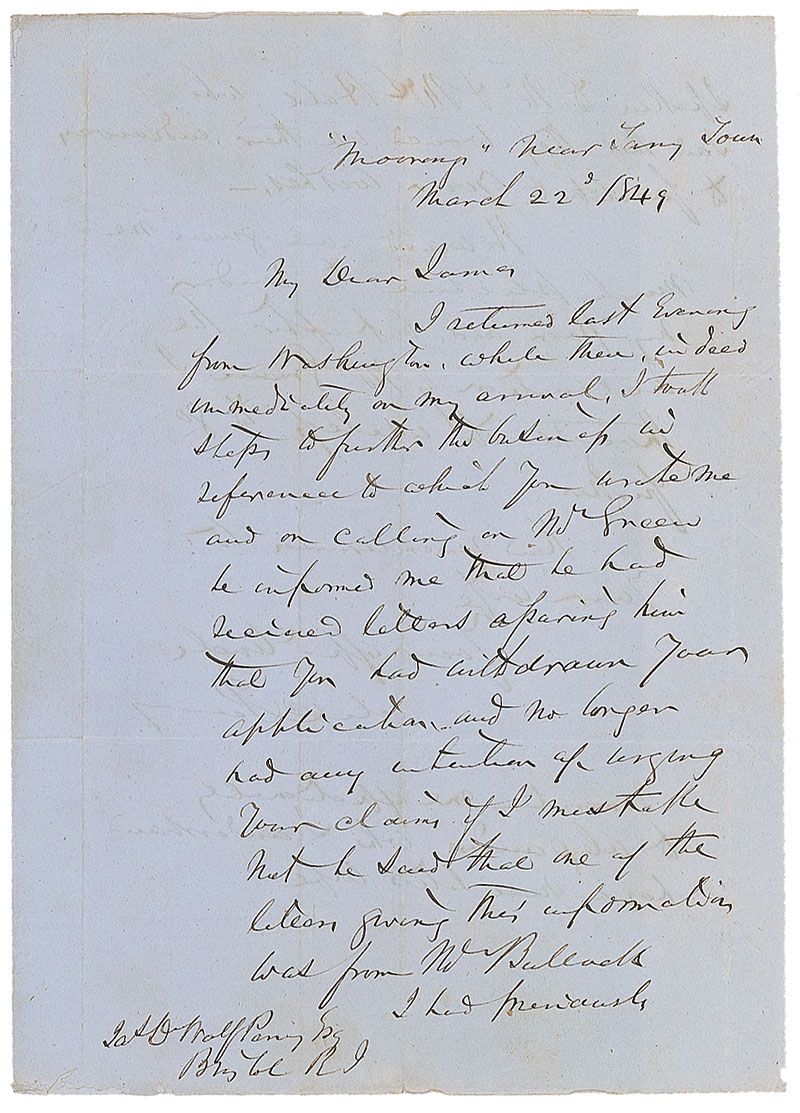 "Moorings" Near Tarry Town
March 22d 1849
My Dear James
I returned last Evening
from Washington. while there, indeed
immediately on my arrival, I took
steps to further the business in
reference to which You wrote me
and on calling on Mr Green
he informed me that he had
received letters assuring him
that You had withdrawn Your
application and no longer
had any intention of urging
Your claims if I mistake
Not he said that one of the
letters giving this information
was from Mr Bullock
I had previously
Jas D'Wolf Perry Esq
Bristol R I